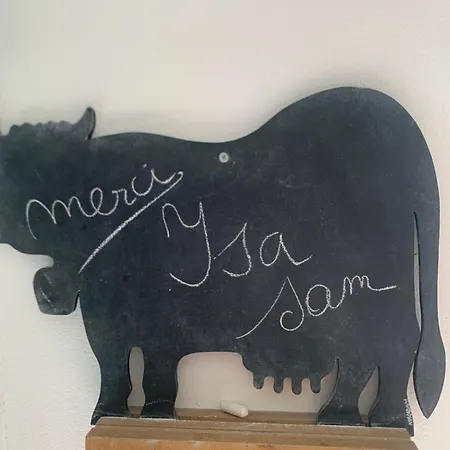 merci
Ysa
Sam